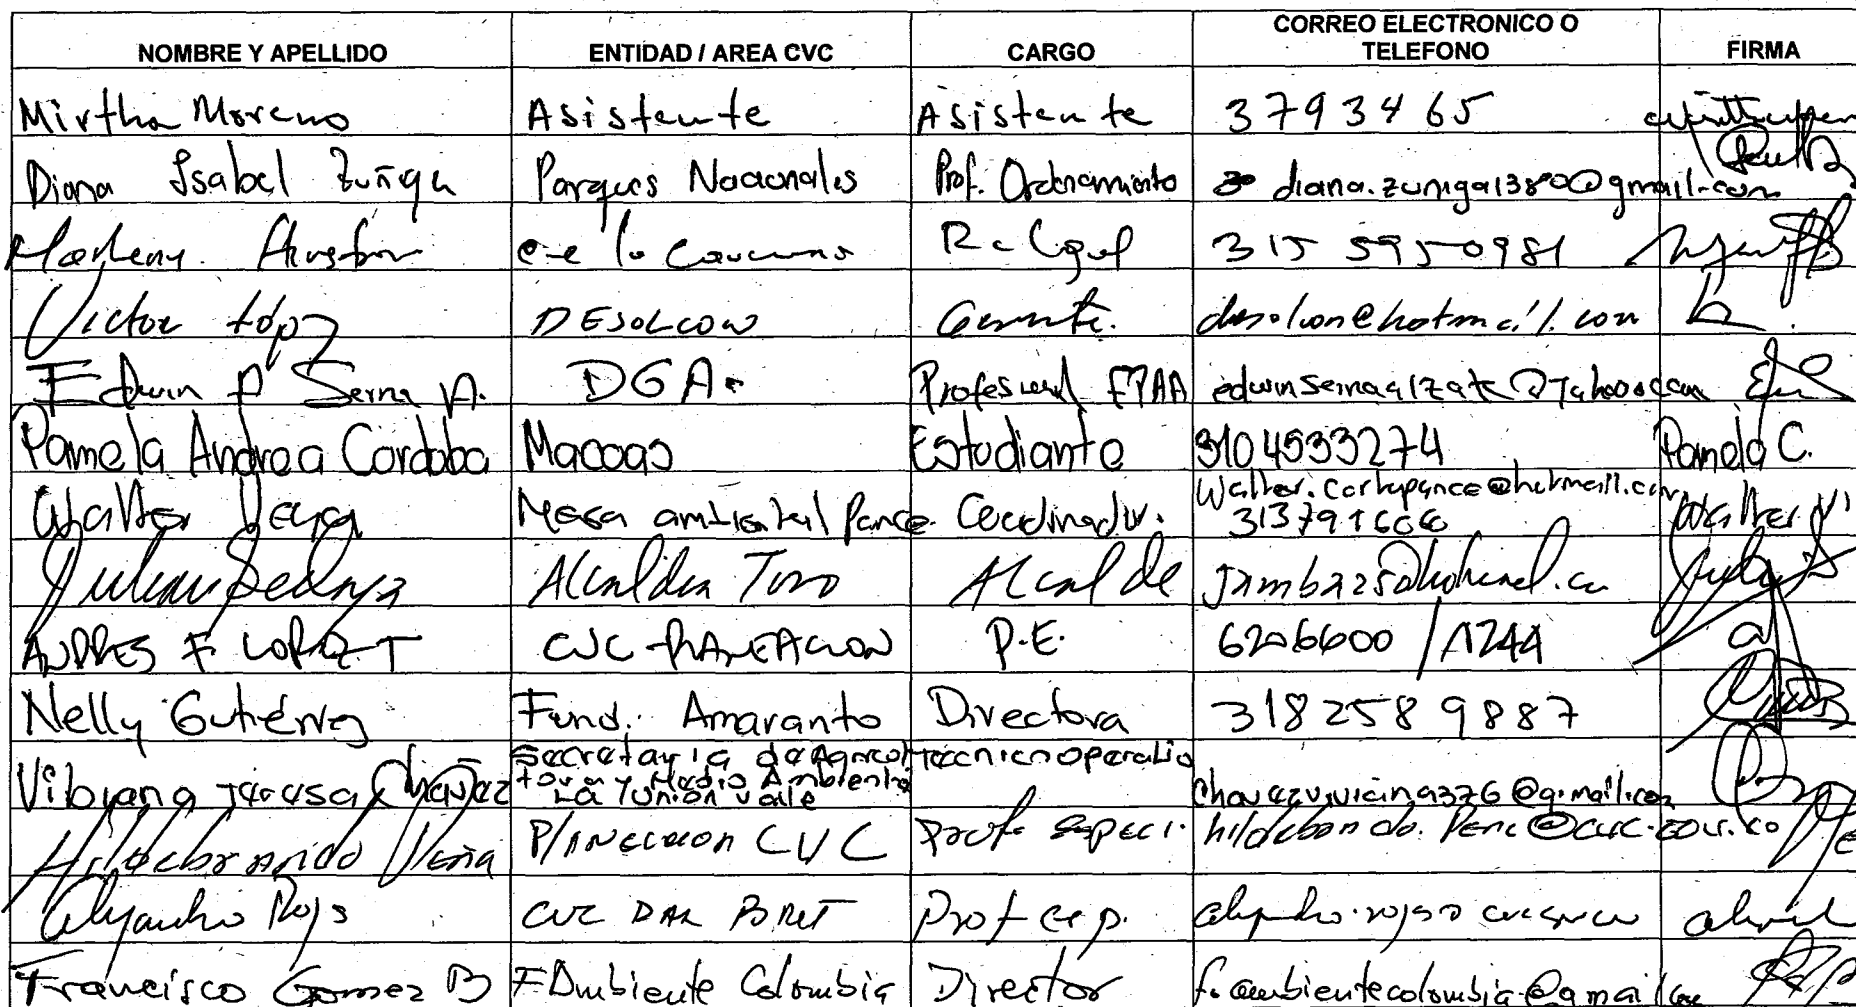 NOMBRE Y APELLIDO ENTIDAD / AREA CVC CARGO CORREO ELECTRONICO O TELEFONO FIRMA
Mirtha Moreno Asistente Asistente 3793465
Diana Isabel Zuñiga Parques Nacionales Prof. Ordenamiento diana.zuniga1380@gmail.com
315 5950981
Victor López DESOLCON Gerente. desolcon@hotmail.com
Edwin A Serna A. DGA. Profesional EPAA edwinsernaalzate@yahoo.com
Pamela Andrea Cordoba Macoas Estudiante 3104533274 Pamela C.
Walter Vera Mesa ambiental Pance. Coordinador. Walter.cortupance@hotmail.com Walter V
313791606
Julian Bedoya Alcaldia Toro Alcalde
ANDRES F LOPEZ T CVC-PLANEACION P.E. 6206600 /1244
Nelly Gutiérrez Fund. Amaranto Directora 318 258 9887
Vibiana Teresa Chavez Secretaria de Agricol tecnico operativo
tora y Medio Ambiente
La Union Valle chavezviviana376@gmail.com
Hildebrando Peña Planeccion CVC Prof. Especi.
Alejandro Rojas CVC DAR BRUT Prof esp.
Francisco Gomez B FDmbiente Colombia Director f.ambientecolombia@gmail.com